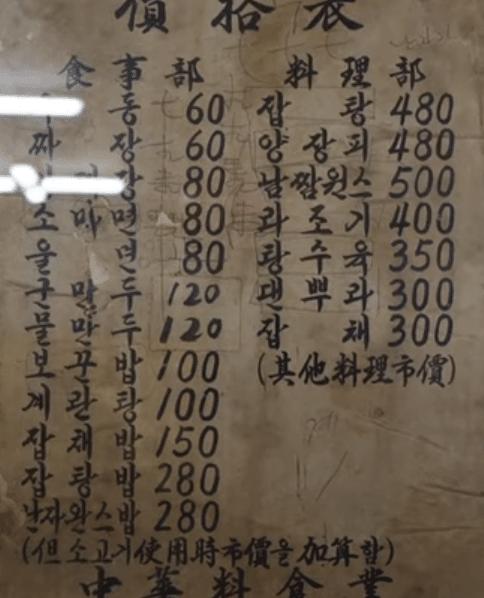 價拾表
食事部
동 60
짜장 60
장 80
소마면 80
울면 80
군만두 120
물만두 120
보끈밥 100
계란탕 100
잡채밥 150
잡탕밥 280
난자완스밥 280
(但소고기使用時市價을加算함)
料理部
잡탕 480
양장피 480
남짬원스 500
라조기 400
탕수육 350
덴뿌라 300
잡채 300
(其他料理市價)
中華料食業